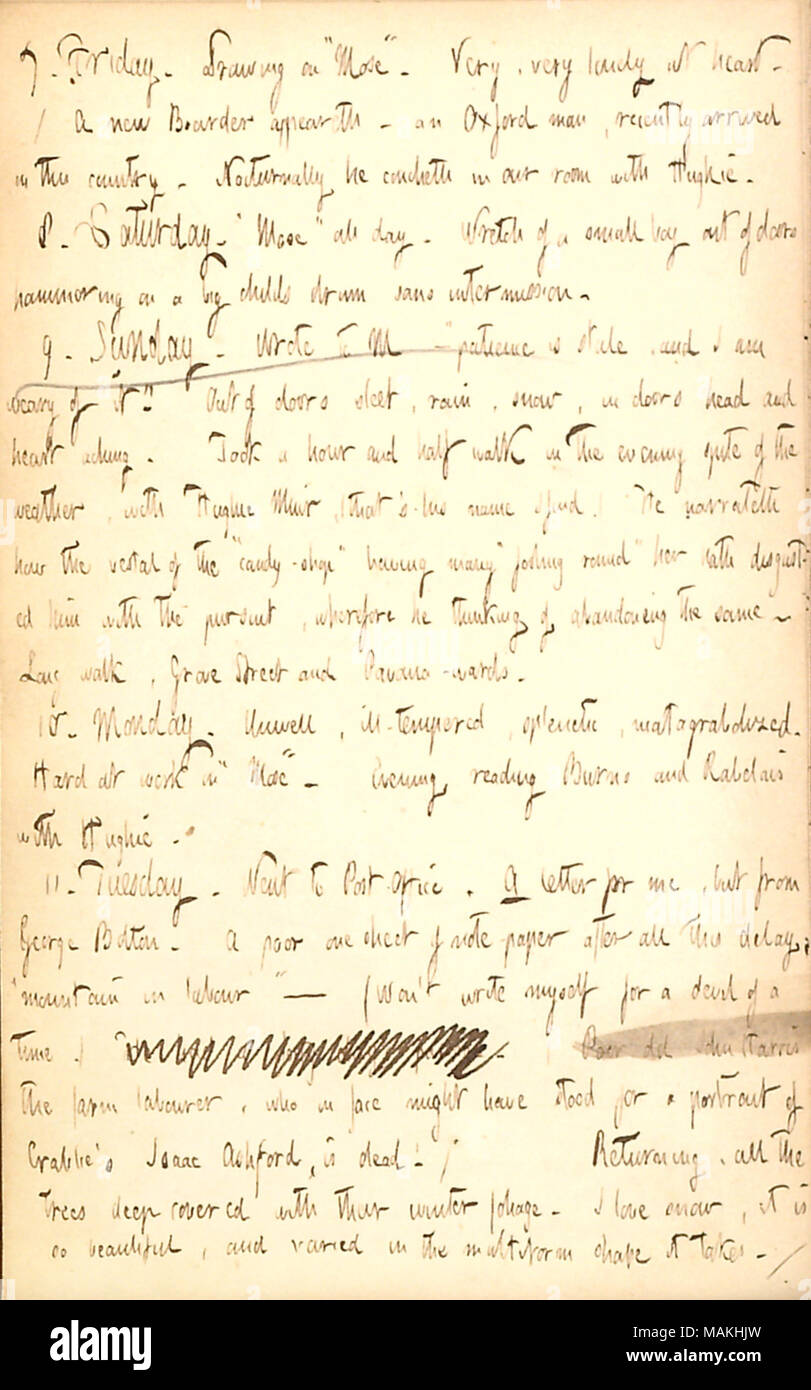 7. Friday. Drawing on "Mose". Very, very lonely at heart.
/ A new Boarder appeareth - an Oxford man, recently arrived
in this country. Nocturnally he coucheth in our room with Hughie.
8. Saturday. "Mose" all day. Wretch of a small boy out of doors
hammering on a big childs drum sans intermission.
9. Sunday. Wrote to M "patience is stale, and I am
weary of it". Out of doors sleet, rain, snow, in doors head and
heart aching. Took a hour and half walk in the evening spite of the
weather, with Hughie Muir, (that is his name I find.) He narrateth
how the vestal of the "candy-shop" having many "foshing round" her hath disgust-
ed him with the pursuit, wherefore he thinking of abandoning the same.
Long walk, Grove Street and Pavonia-wards.
10. Monday. Unwell, ill-tempered, splenetic, matagrabolized.
Hard at work on "Mose". Evening, reading Burns and Rabelais
with Hughie.
11. Tuesday. Went to Post-Office. A letter for me, but from
George Bolton. A poor one sheet of note-paper after all this delay,
"mountain in labour" — (Won't write myself for a devil of a
time.) Poor old John Harris
the farm labourer, who in face might have stood for a portrait of
Crabbe's Isaac Ashford, is dead. / Returning, all the
trees deep covered with their winter foliage. I love snow, it is
so beautiful, and varied in the multiform shape it takes. /
alamy
Image ID: MAKHJW
www.alamy.com